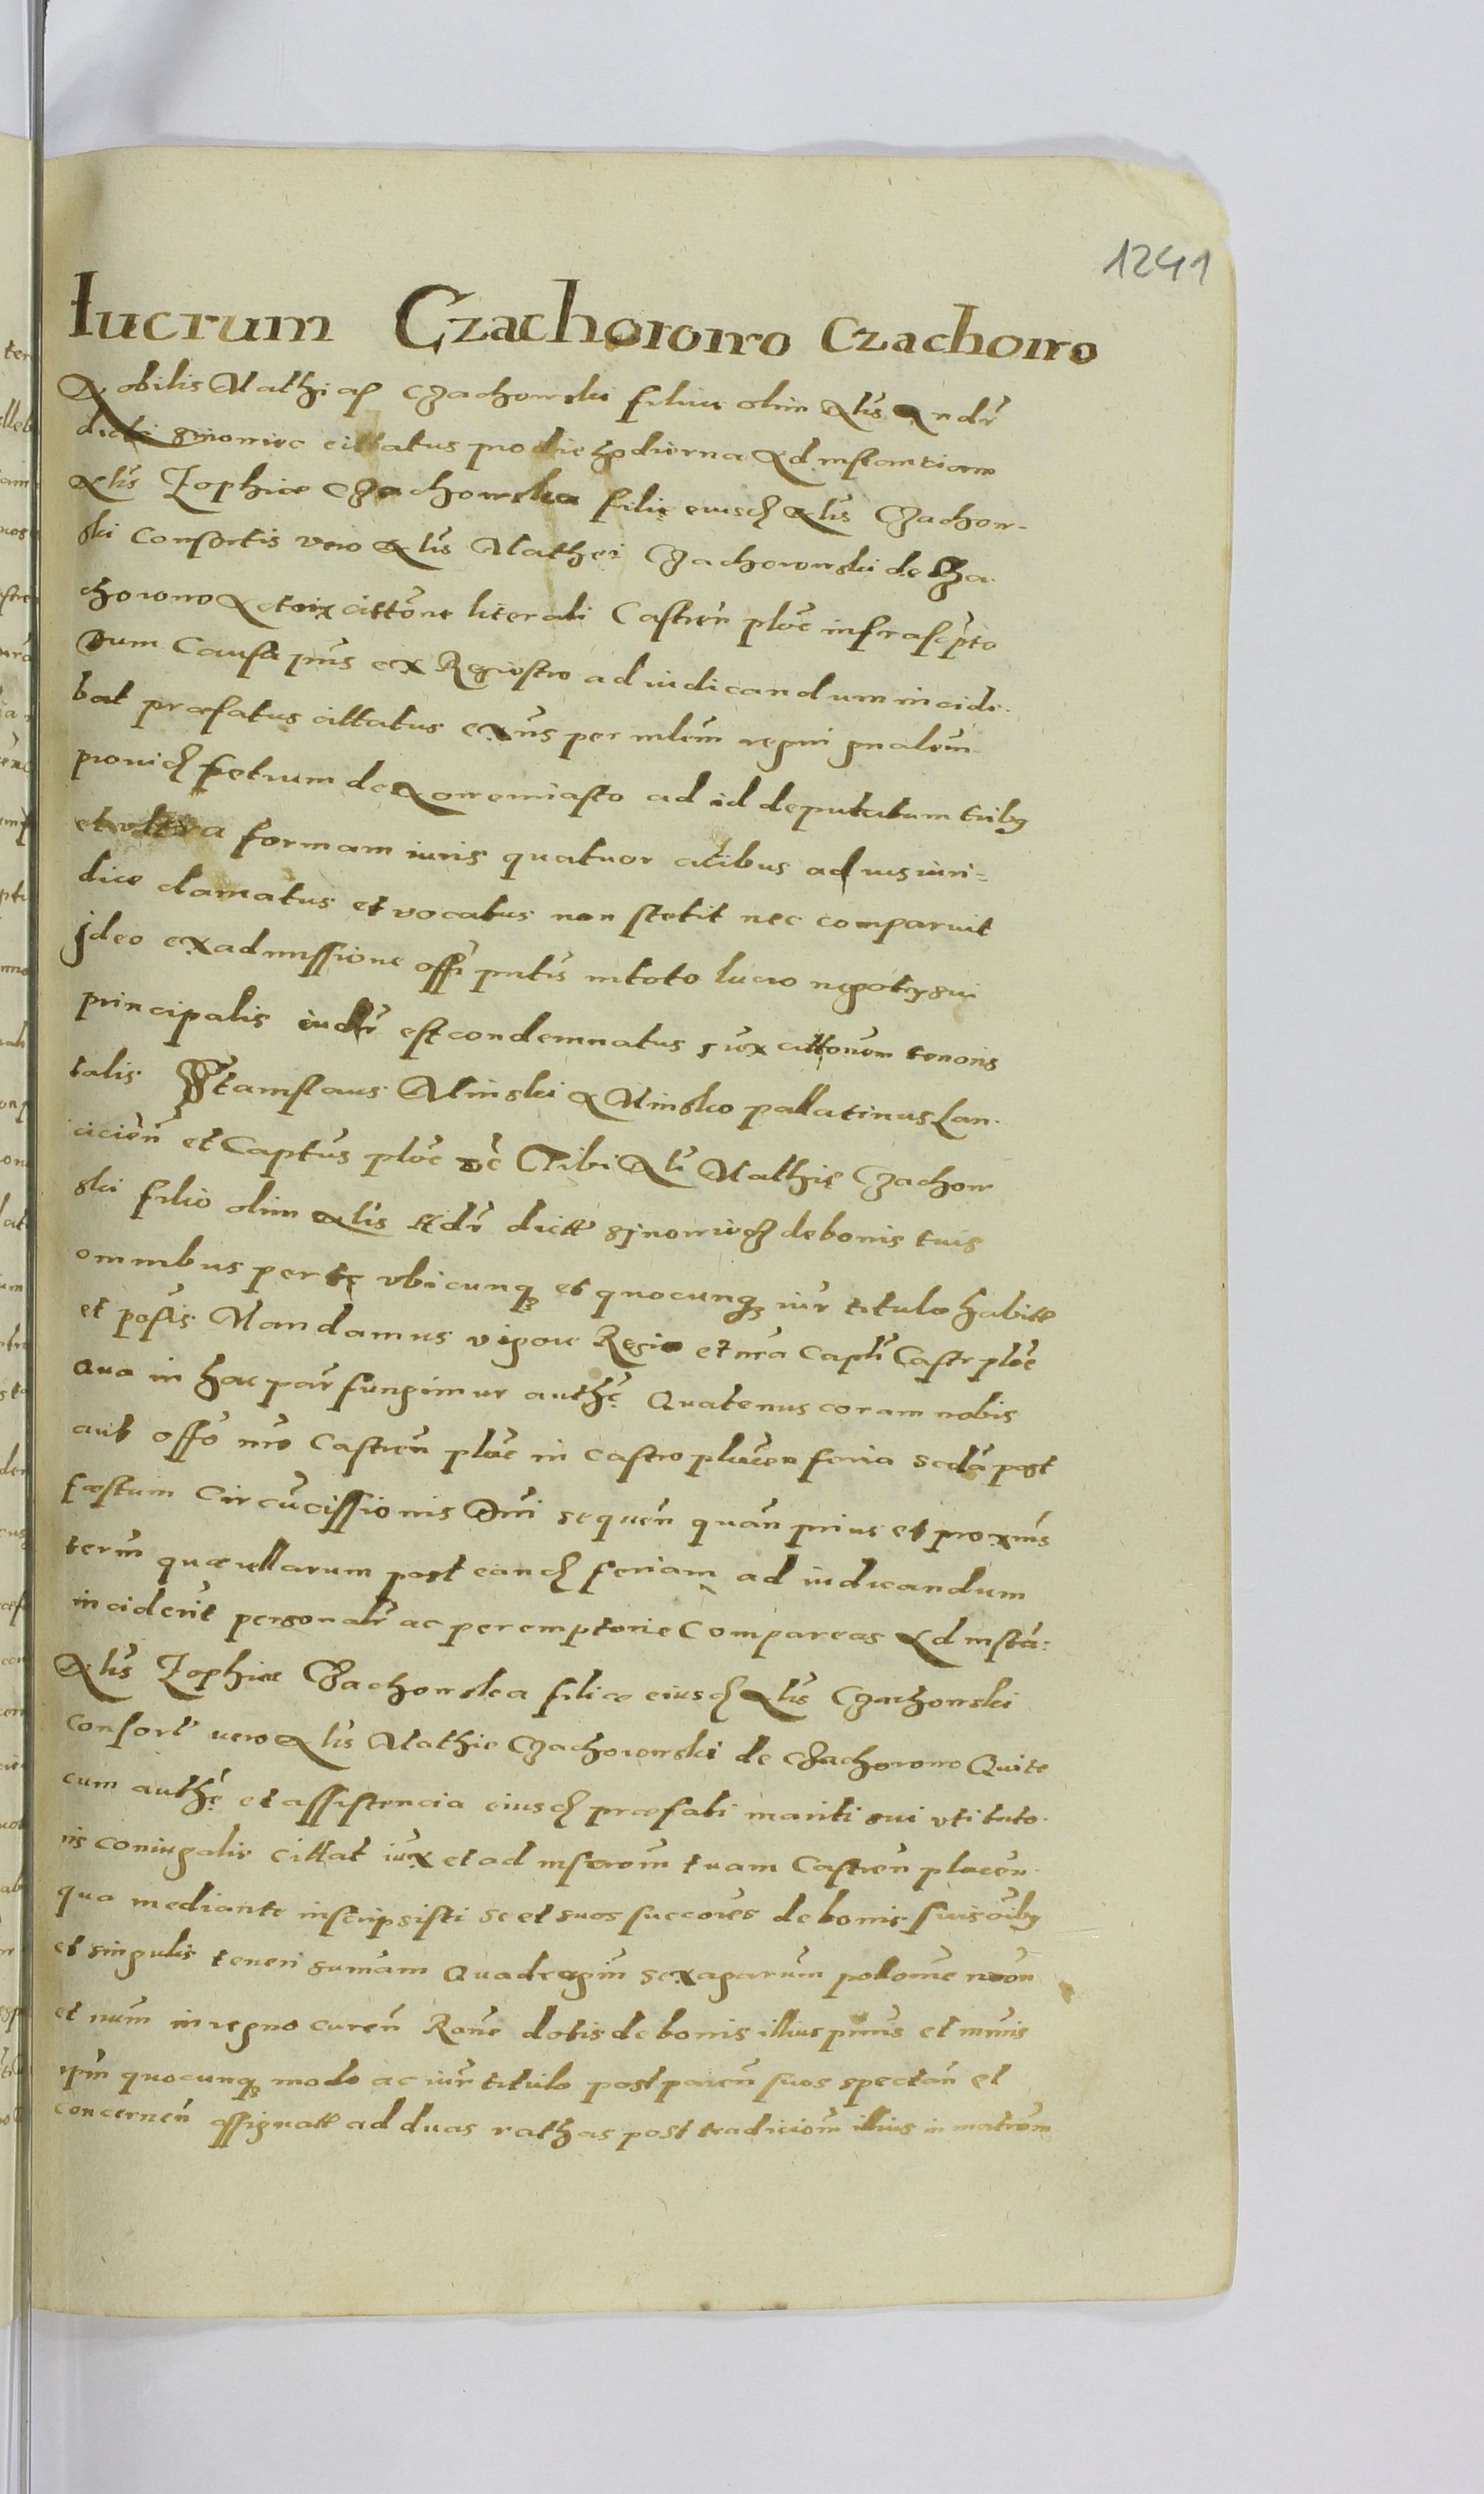 1241
Lucrum Czachorowo Czachowo
Nobilis Mathias Czachowski filius olim Nlis Andr
dicti gnoniec cittatus pro die hodierna Ad instantiam
Nlis Zophiae Czachowska filie eiusd Nlis Czachow-
ski Consortis vero Nlis Mathei Czachorowski de Cza-
chorowo Actoris cittone literali Castren ploc infrascripto
Dum Causa pns ex Regiostro ad iudicandum incide-
bat praefatus cittatus exns per mlem regni gnalem
provid Petrum de Nowemiasto ad id deputatum trib9
et ultra formam iuris quatuor acibus ad ius iuri=
dice clamatus et vocatus non stetit nec comparuit
Ideo ex admissione offi pntis in toto lucro negoty sui
principalis iudr est condemnatus iux cittonem tenoris
talis Stanislaus Minski A Minsko pallatinus Lan-
cicien et Captus ploc etc Tibi Nli Mathie Czachow
ski filio olim Nlis Andr dicti gnoniecz de bonis tuis
omnibus per te ubicunq et quocunq iur titulo habitis
et possis Mandamus vigore Regia et nra Capli Castr ploc
Qua in hac par fungimur authe Quatenus coram nobis
aut offo nro Castren ploc in castro plocen feria scda post
festum Circucissionis Dni sequen quan prius et proxims
term quaerellarum post eand feriam ad iudicandum
inciderit personalr ac peremptorie Compareas Ad insta:
Nlis Zophiae Czachowska filiae eiusd Nlis Czachowski
consort vero Nlis Mathie Czachorowski de Czachorowo Qui te
cum authe et assistencia eiusd praefati mariti sui uti tuto-
ris coniugalis cittat iux et ad inscrom tuam Castren plocen
qua mediante inscripsisti se et suos succores de bonis suis oib9
et singulis teneri sumam Quadragin sexagarum polonie mon
et num in regno curen Rone dotis de bonis illius pnis et mnis
ipm quocunq modo ac iur titulo post paren suos spectan et
concernen assignatt ad duas rathas post tradiciom illius in matrom